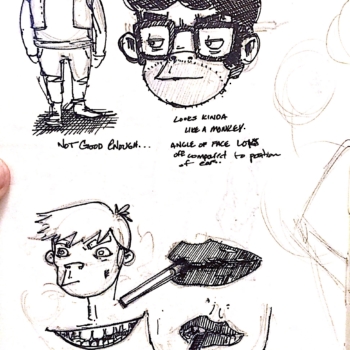 NOT GOOD ENOUGH...
LOOKS KINDA
LIKE A MONKEY.
ANGLE OF FACE LOOKS
off compared to position
of ear.